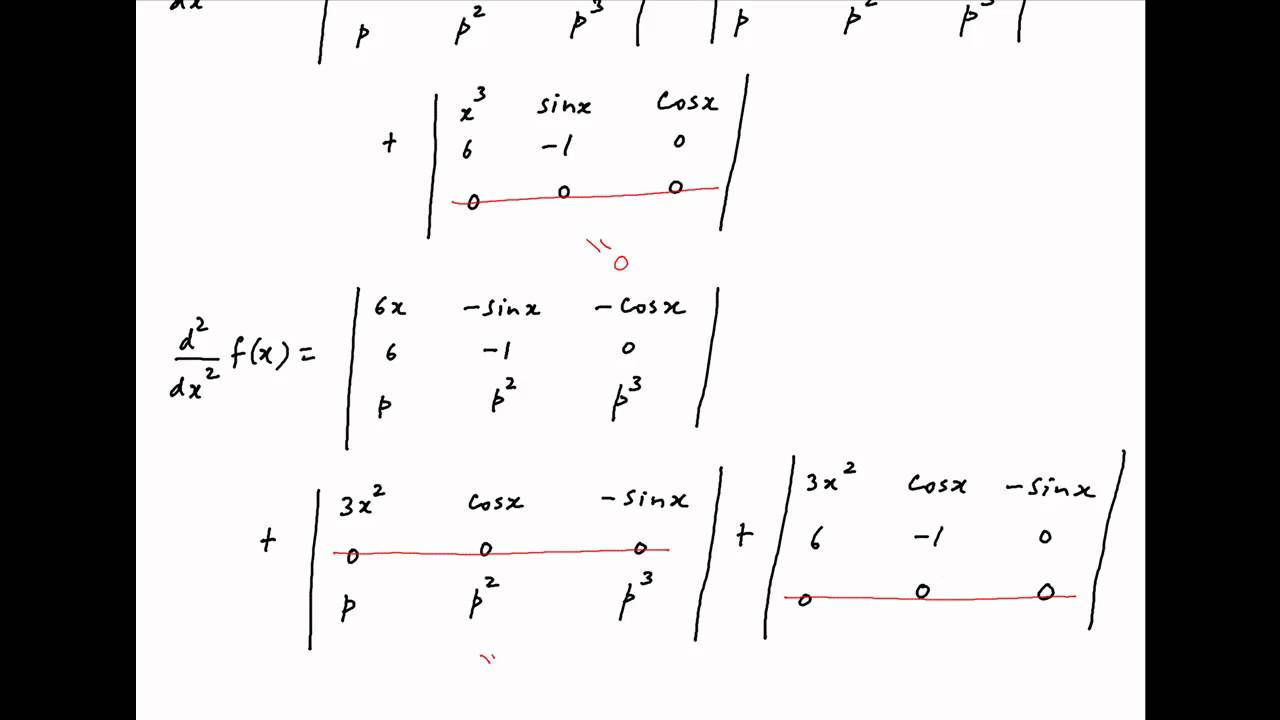 dx | p p² p³ | | p p² p³ |
+ | x³ sinx cosx |
6 -1 0
0 0 0
" 0
d²/dx² f(x) = | 6x -sinx -cosx |
6 -1 0
p p² p³
+ | 3x² cosx -sinx | + | 3x² cosx -sinx |
0 0 0 6 -1 0
p p² p³ 0 0 0
"